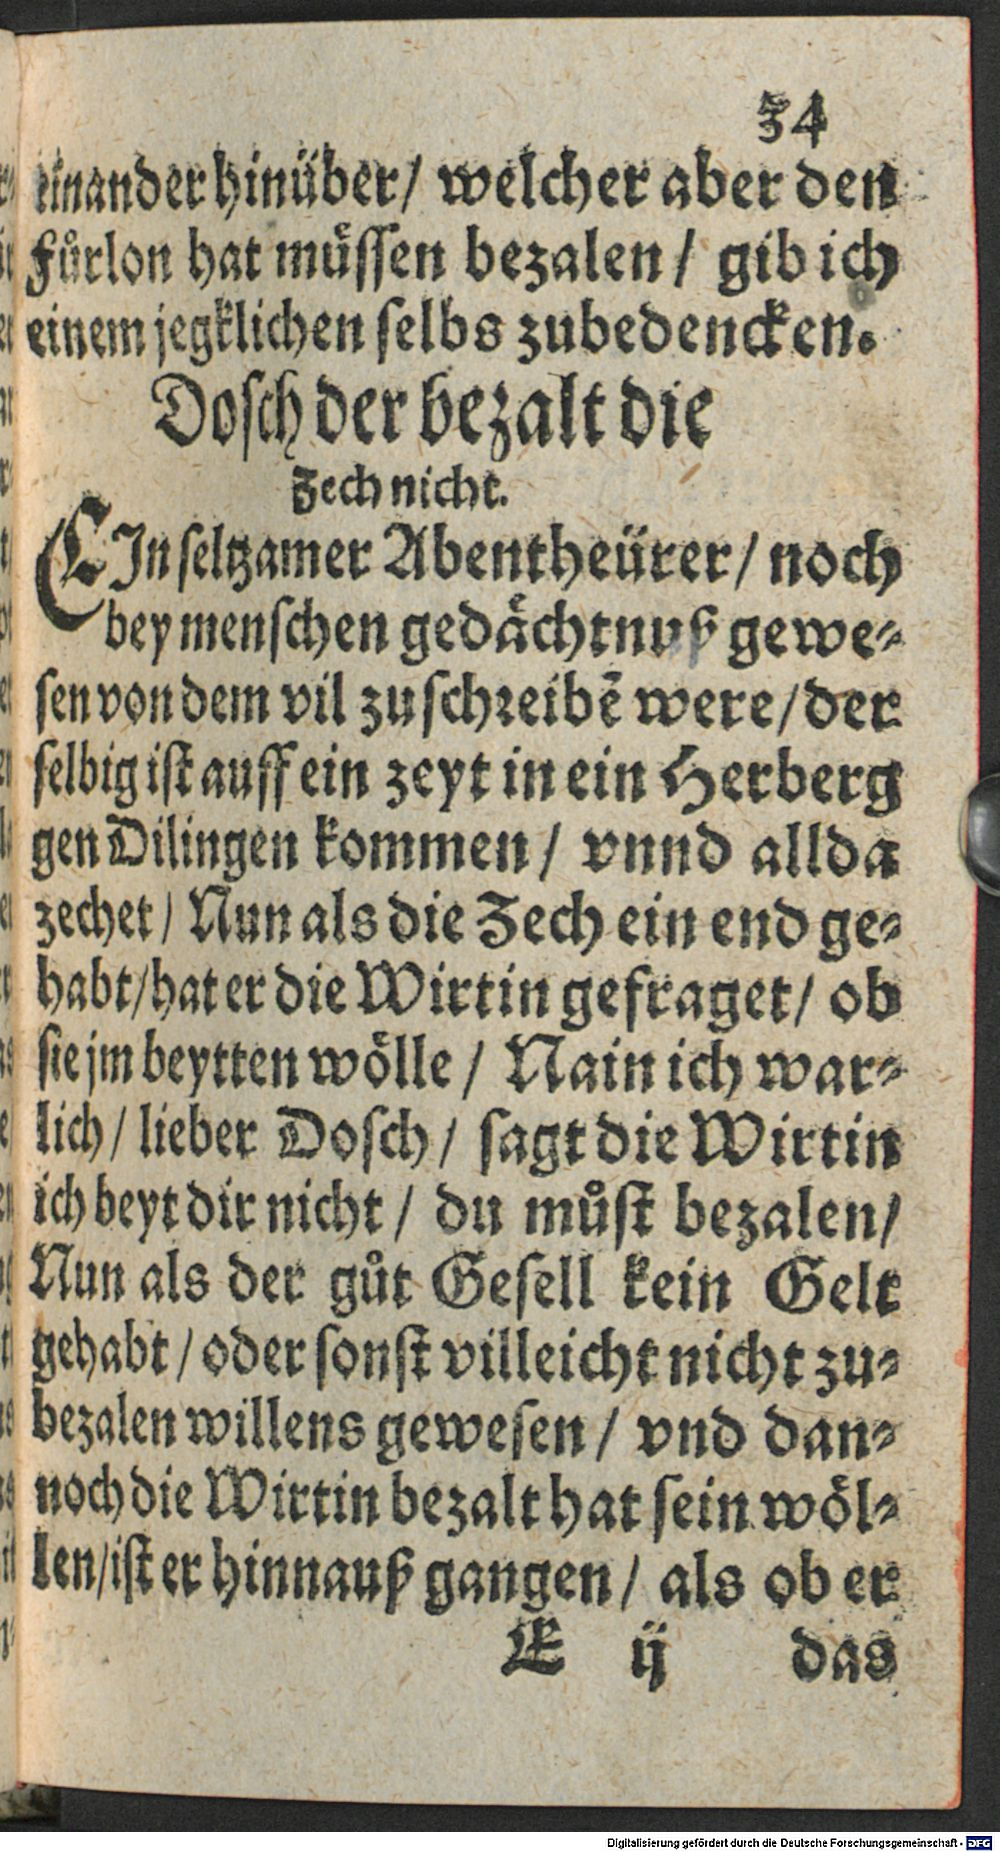 34
einander hinüber/ welcher aber den
Fůrlon hat müssen bezalen/ gib ich
einem jegklichen selbs zubedencken.
Dosch der bezalt die
Zech nicht.
EIn seltzamer Abentheürer/ noch
bey menschen gedåchtnuß gewe-
sen von dem vil zu schreibẽ were/ der
selbig ist auff ein zeyt in ein Herberg
gen Dilingen kommen/ vnnd allda
zechet/ Nun als die Zech ein end ge-
habt/ hat er die Wirtin gefraget/ ob
sie jm beytten wölle/ Nain ich war-
lich/ lieber Dosch/ sagt die Wirtin
ich beyt dir nicht/ du můst bezalen/
Nun als der gůt Gesell kein Gelt
gehabt/ oder sonst villeicht nicht zu-
bezalen willens gewesen/ vnd dan-
noch die Wirtin bezalt hat sein wöl-
len/ ist er hinnauß gangen/ als ob er
E ij das
Digitalisierung gefördert durch die Deutsche Forschungsgemeinschaft - DFG